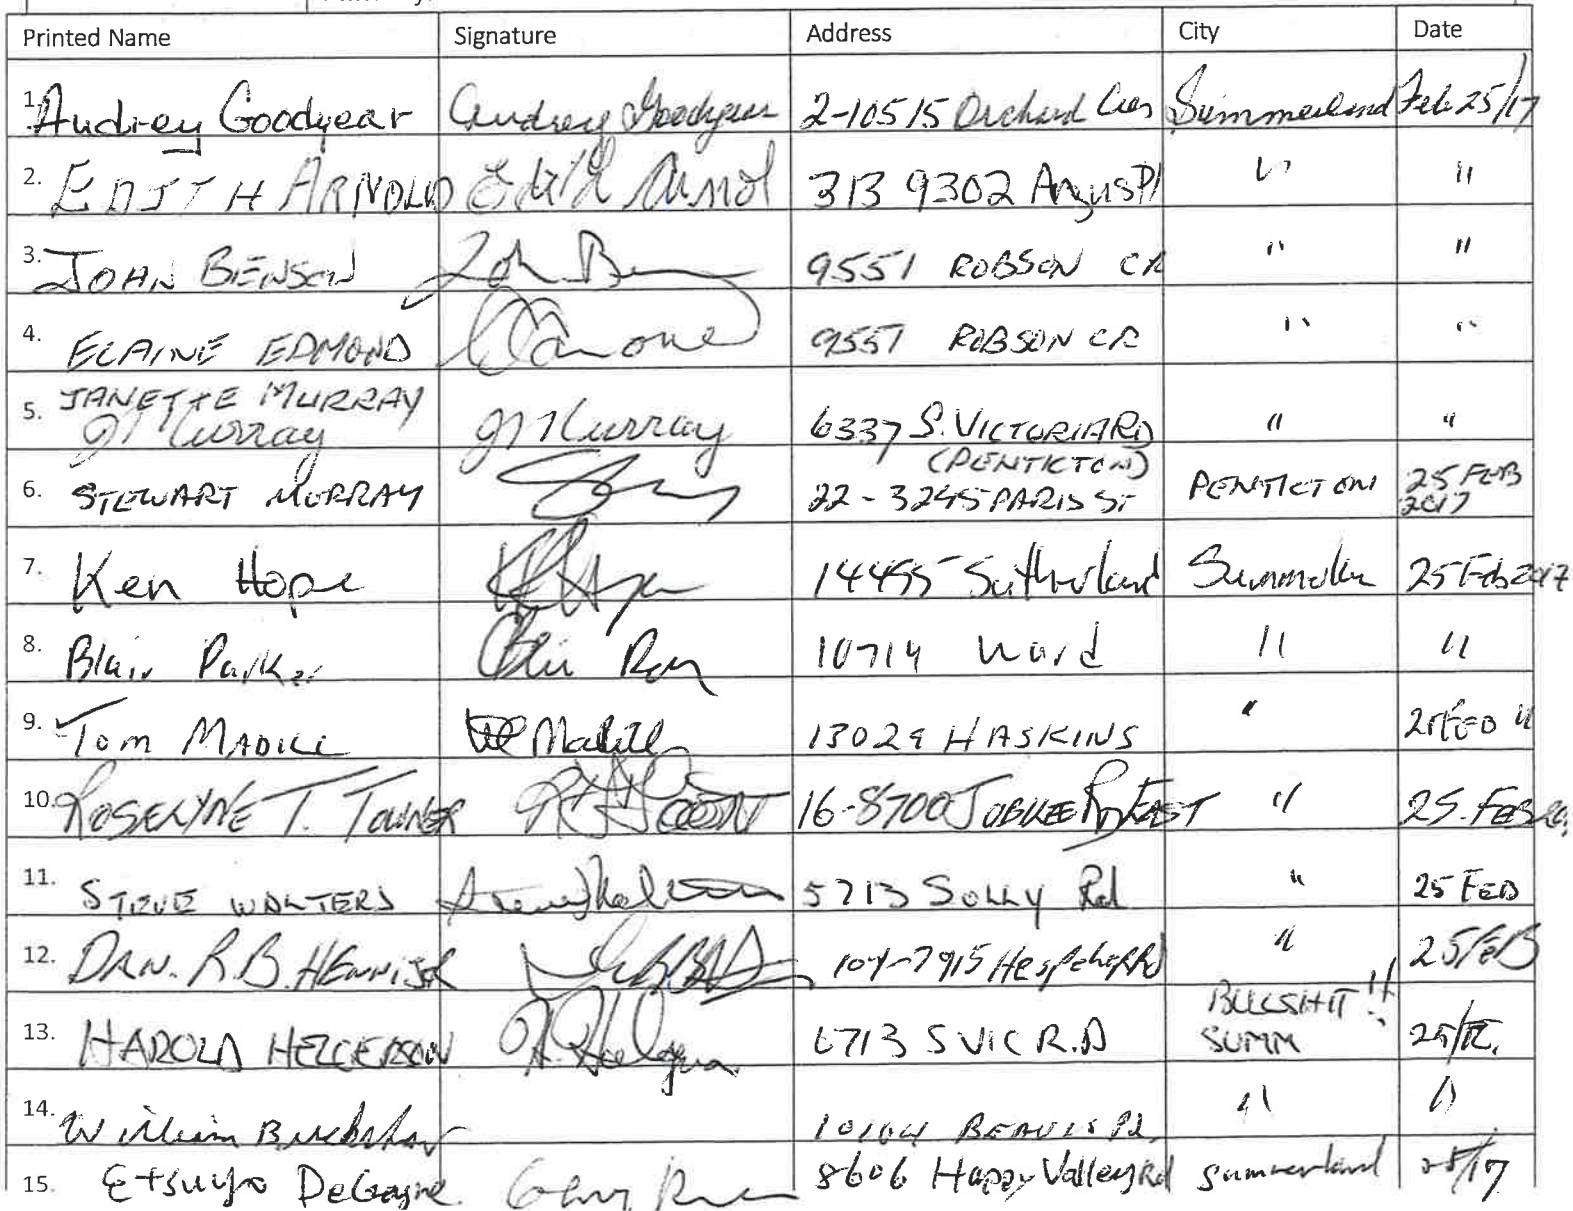 Printed Name Signature Address City Date
1. Audrey Goodyear Audrey Goodyear 2-10515 Orchard Cres Summerland Feb 25/17
2. EDITH ARNOLD Edith Arnold 313 9302 Angus Pl " "
3. JOHN BENSON 9551 ROBSON CR " "
4. ELAINE EDMOND 9551 ROBSON CR " "
5. JANETTE MURRAY
JMurray JMurray 6337 S. VICTORIA RD " "
(PENTICTON)
6. STEWART MURRAY 22-3245 PARIS ST PENTICTON 25 FEB
2017
7. Ken Hope 14495 Sutherland 25 Feb 2017
8. Blair Parker 10714 Ward " "
9. Tom MADILL 13029 HASKINS " "
10. ROSELYNE T. TOWNER 16-8700 JUBILEE RD EAST " 25. FEB
11. STEVE WALTERS 5713 SOLLY Rd " 25 FEB
12. DAN. R B. 104-7915 Hespeler Rd " 25 FEB
BULLSHIT!!
13. HAROLD HELGERSON 6713 S VIC R.D SUMM
14. William 10104 " "
15. Etsuyo DeGagne 8606 Happy Valley Rd Summerland